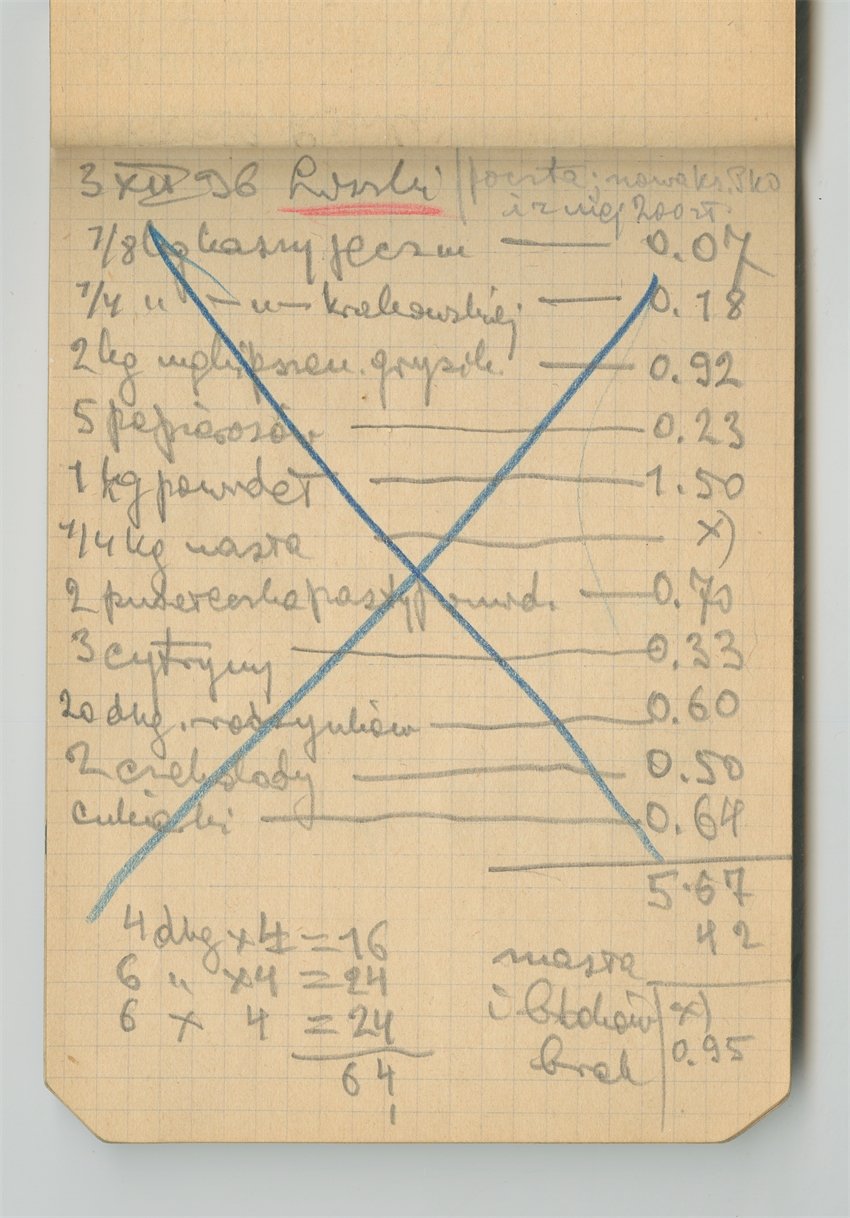 3 XII 36 Łuski
poczta; nowa ks. PKO
i z niej 200 zł.
1/8 kg kaszy jęczm 0.07
1/4 " — " — krakowskiej 0.18
2 kg najlepszeu. grysik. 0.92
5 papierosów 0.23
1 kg powideł 1.50
1/4 kg masła x)
2 pudełeczka pasty 0.70
3 cytryny 0.33
20 dkg. rodzynków 0.60
2 czekolady 0.50
cukierki 0.64
5.67
42
4 dkg x 4 = 16
6 " x 4 = 24
6 x 4 = 24
64
masła
i
brak
x)
0.95